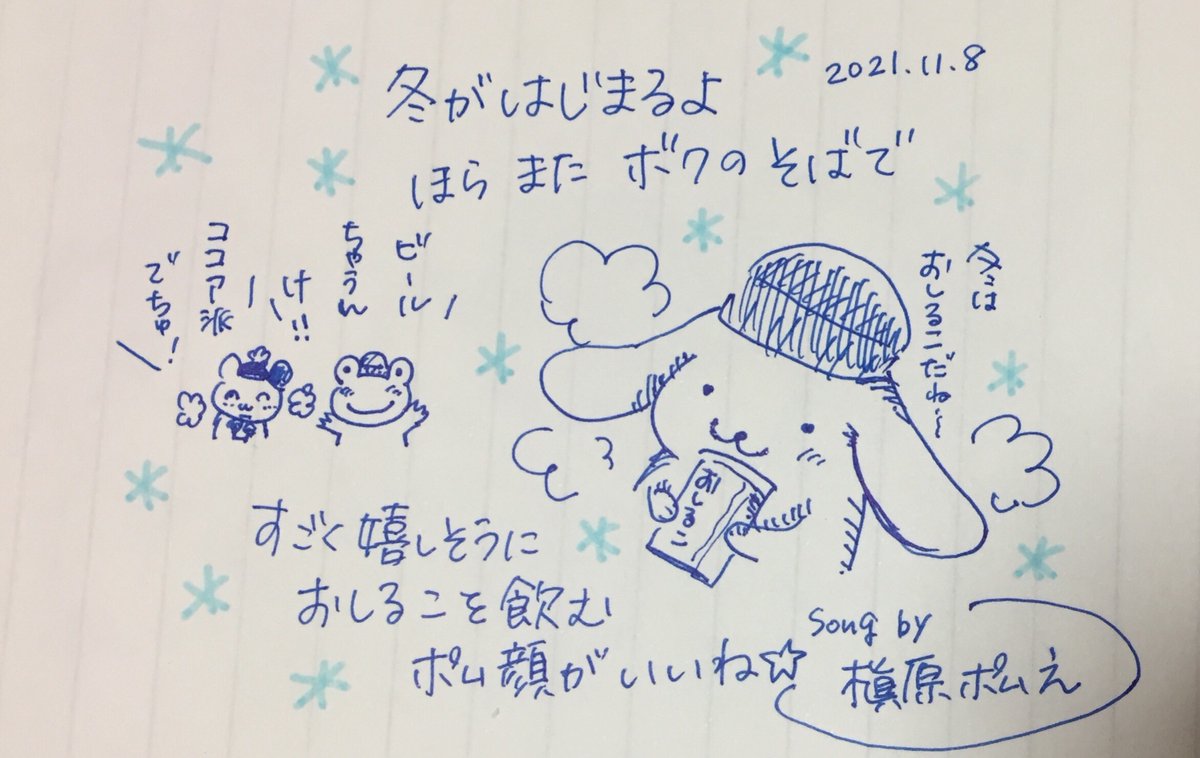 2021.11.8
冬がはじまるよ
ほら また ボクの そばで
冬は
おしるこだね〜
ビール
ちゃうん
け!!
ココア派
でちゅ!
おしるこ
すごく嬉しそうに
おしるこを飲む
ポム顔がいいね☆
song by
槇原ポムえ